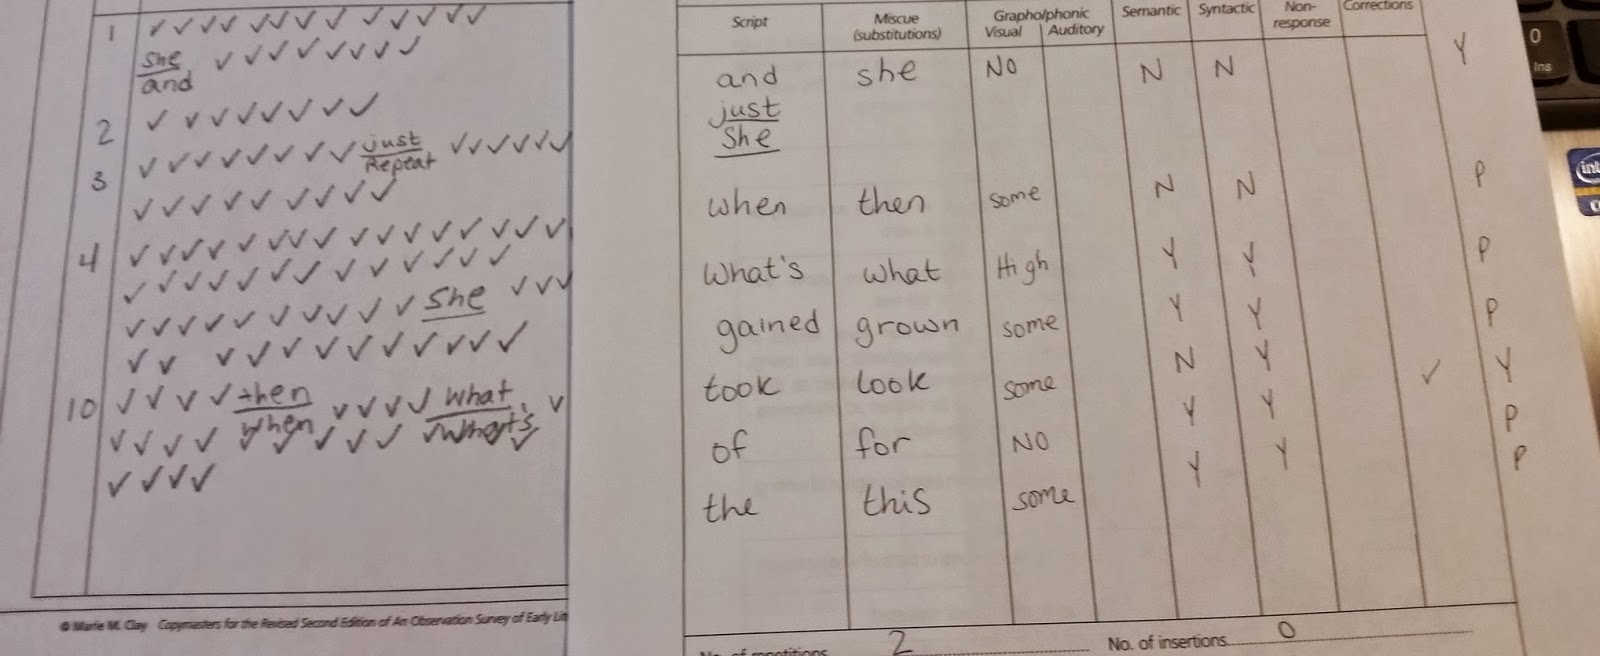 1 ✓✓✓✓✓✓✓✓✓✓✓✓✓
She ✓✓✓✓✓✓✓✓
and
2 ✓✓✓✓✓✓✓✓
3 ✓✓✓✓✓✓✓✓ just ✓✓✓✓✓✓
Repeat
✓✓✓✓✓✓✓✓✓
4 ✓✓✓✓✓✓✓✓✓✓✓✓✓✓✓✓
✓✓✓✓✓✓✓✓✓✓✓✓✓
✓✓✓✓✓✓✓✓✓✓ She ✓✓✓
✓✓ ✓✓✓✓✓✓✓✓✓
10 ✓✓✓✓ then ✓✓✓✓ what ✓
when what's
✓✓✓✓ ✓✓✓✓✓ ✓✓
✓✓✓✓
© Marie M. Clay Copymasters for the Revised Second Edition of An Observation Survey of Early
Script Miscue (substitutions) Grapho/phonic Visual Auditory Semantic Syntactic Non-response Corrections
and she NO N N Y
just
She
when then some N N P
what's what High Y Y P
gained grown some Y Y P
took look some N Y ✓ Y
of for NO Y Y P
the this some Y Y P
No. of repetitions 2 No. of insertions 0
0
Ins